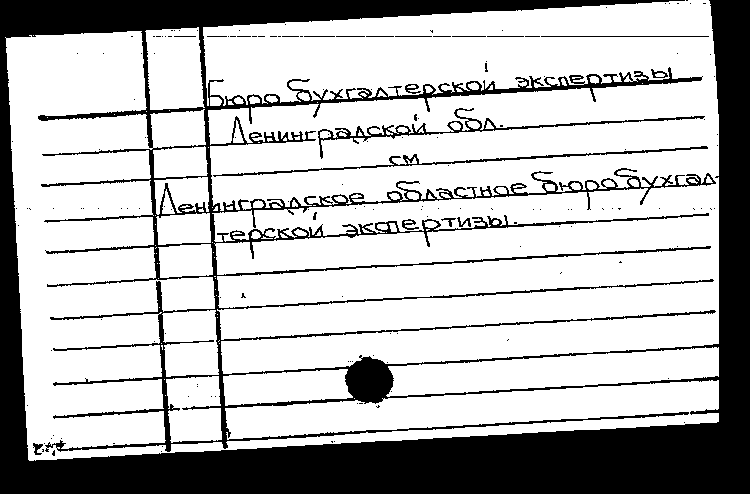 Бюро бухгалтерской экспертизы
Ленинградской обл.
см
Ленинградское областное бюро бухгал-
терской экспертизы.